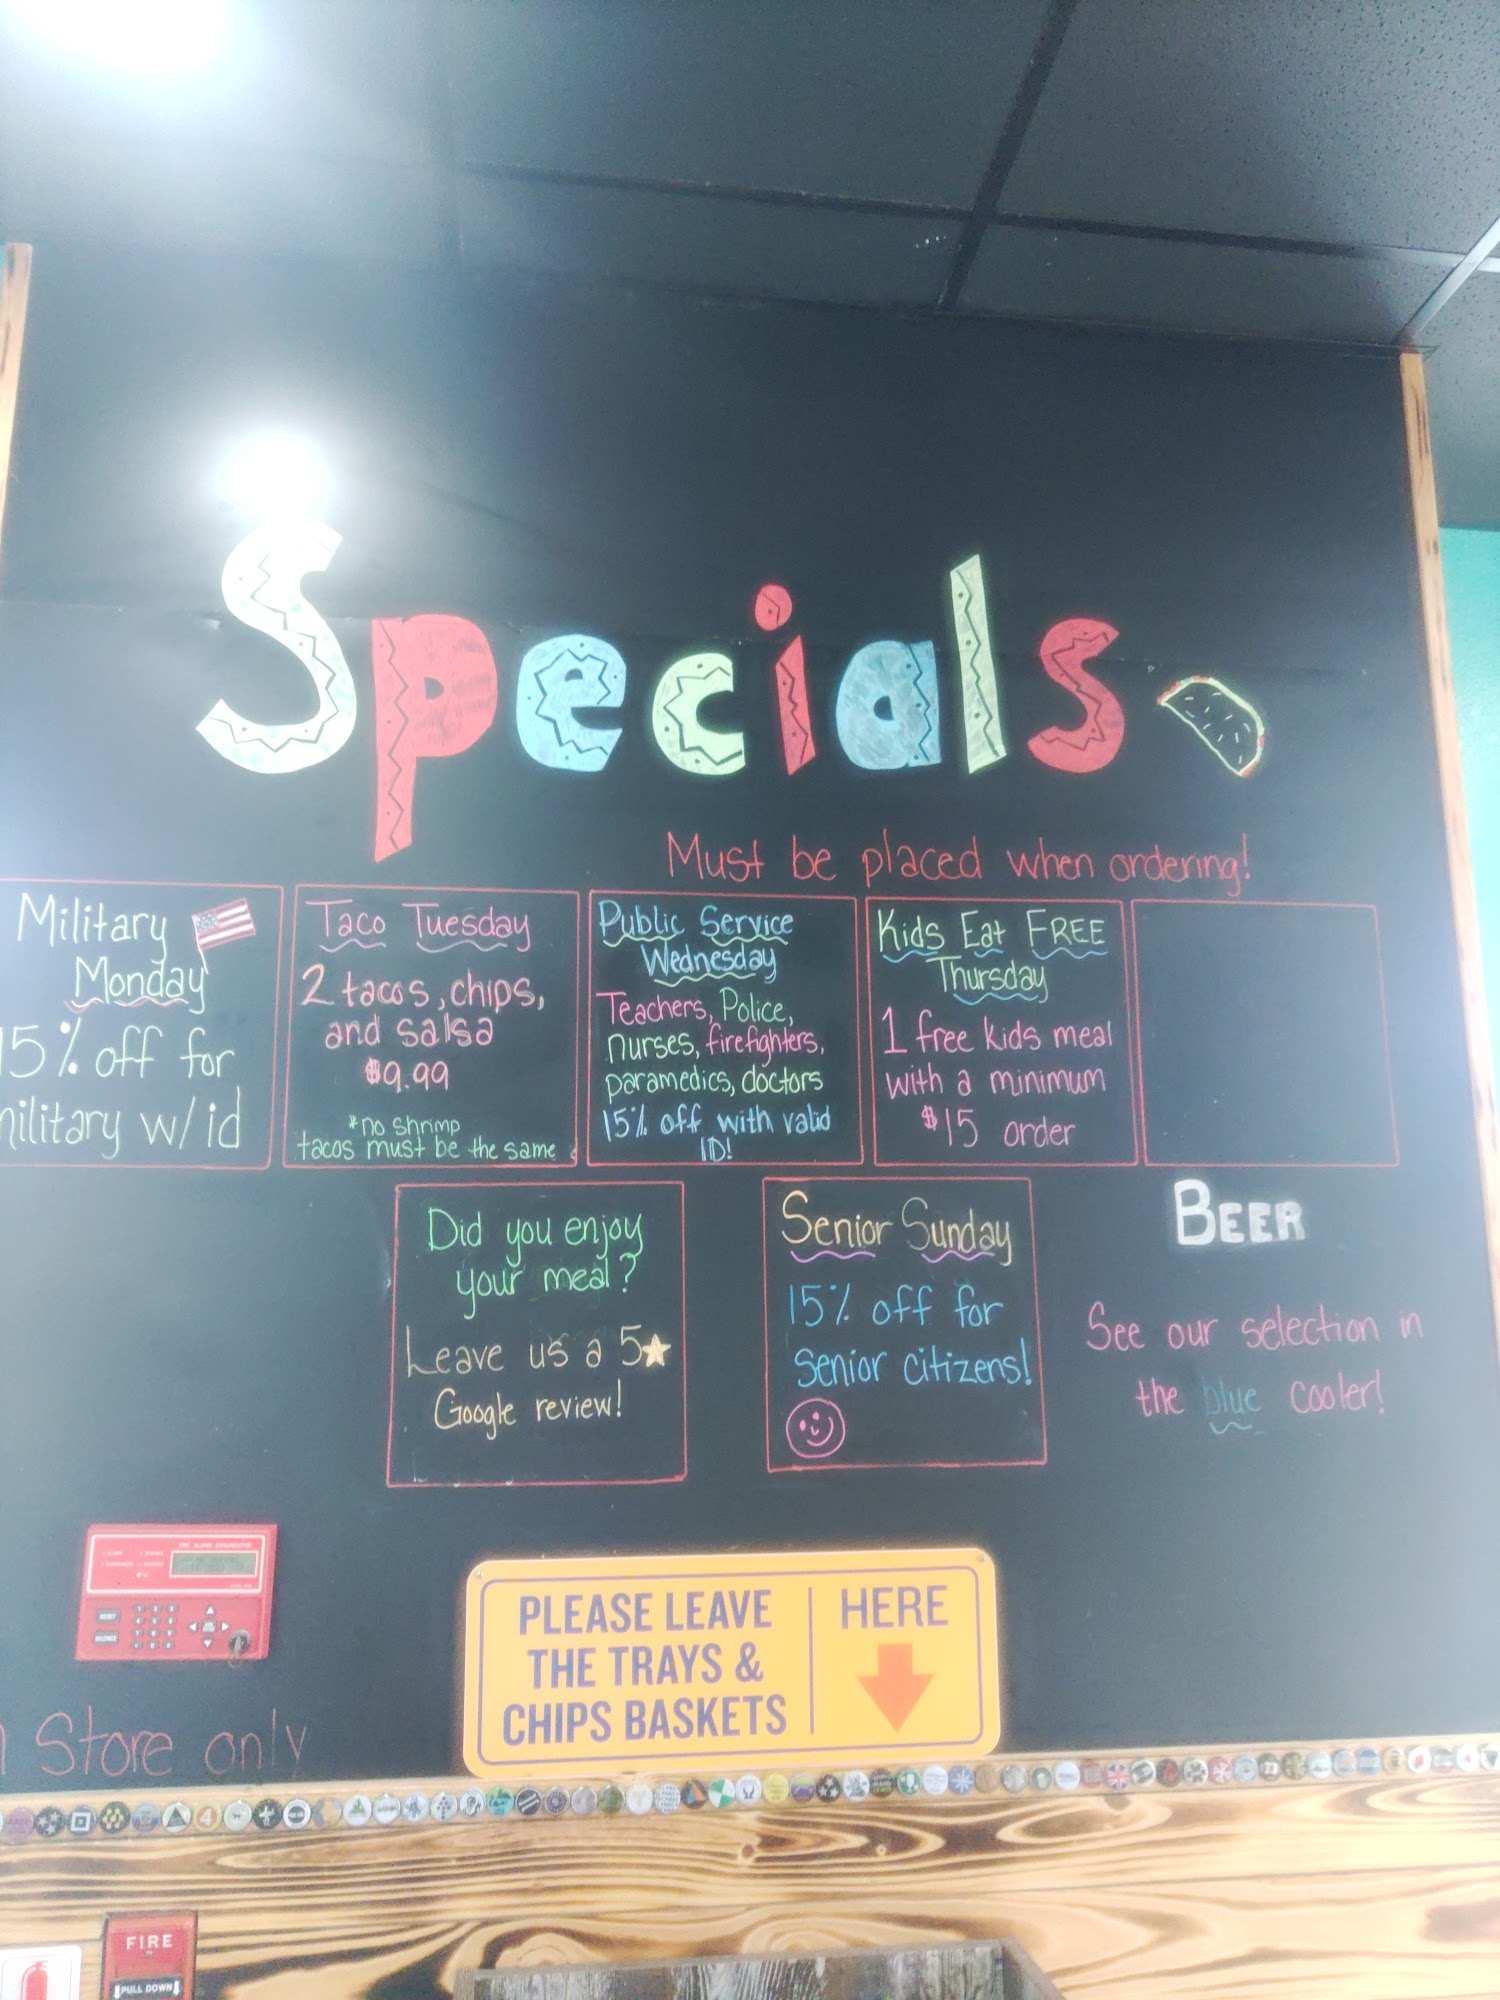 Specials
Must be placed when ordering!
Military
Monday
15% off for
military w/id
Taco Tuesday
2 tacos, chips,
and salsa
$9.99
*no shrimp
tacos must be the same
Public Service
Wednesday
Teachers, Police,
nurses, firefighters,
paramedics, doctors
15% off with valid
ID!
Kids Eat FREE
Thursday
1 free kids meal
with a minimum
$15 order
Did you enjoy
your meal?
Leave us a 5★
Google review!
Senior Sunday
15% off for
senior citizens!
BEER
See our selection in
the blue cooler!
PLEASE LEAVE
THE TRAYS &
CHIPS BASKETS
HERE
RESET
SILENCE
Store only
FIRE
PULL DOWN